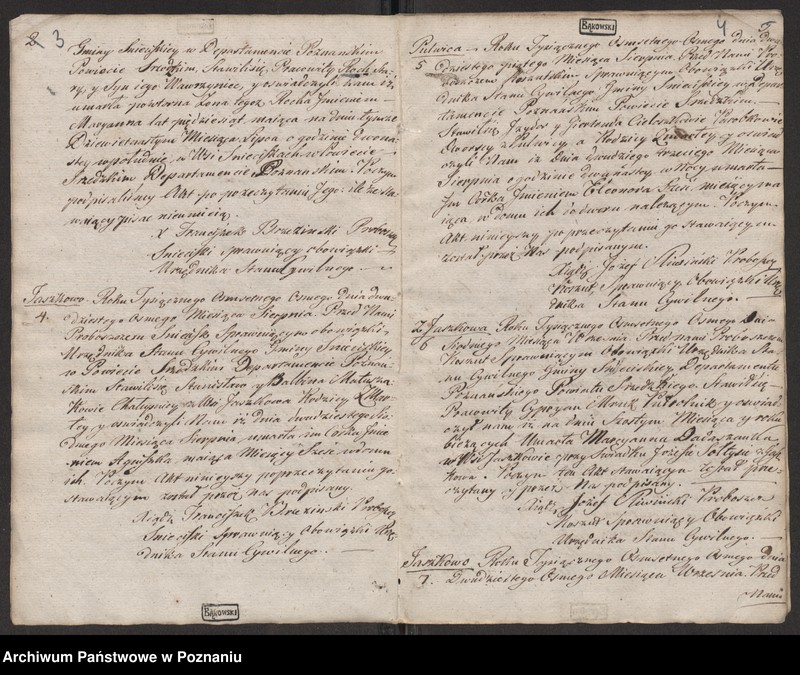 2. 3
Gminy Snieciskiey w Departamencie Poznanskim
Powiecie Szredzkim, Stawiliśię, Pracowity Roch
y Syn iego Wawrzyniec, y oświadczyli nam iż
umarła powtorna żona tegoż Rocha Jmieniem
Maryanna lat pięćdziesiąt maiąca na dniu
Dziewietnastym Miesiąca Lipca o godzinie
w Wsi Snieciskach w Powiecie
Szredzkim Departamencie Poznanskim. Poczym
podpisaliśmy Akt po przeczytaniu Jego
pisac nieumieią.
X Franciszek Brzezinski Proboszcz
Snieciski Sprawuiący obowiązki
Urzędnika Stanu Cywilnego.
Jaszkowo. Roku Tysiącznego Osmsetnego Osmego dnia dwu-
4. dziestego Osmego Miesiąca Sierpnia. Przed Nami
Proboszczem Sniecisk. Sprawuiącym obowiązki
Urzędnika Stanu Cywilnego Gminy Snieciskiey
w Powiecie Szredzkim Departamencie Poznan-
skim Stawiliśię Stanisław y Balbina
Chałupnicy z Wsi Jaszkowa Rodzice
y oświadczyli Nam iż dnia dwudziestego Sio-
dmego Miesiąca Sierpnia, umarła im Corka Jmie-
niem Agniszka, maiąca Miesięcy Szesc w domu
ich. Poczym Akt ninieyszy po przeczytaniu go
Stawaiącym został przez Nas podpisany.
Xiądz Franciszek Brzezinski Proboszcz
Snieciski Sprawuiący Obowiązki Urzę-
dnika Stanu Cywilnego.
BĄKOWSKI
BĄKOWSKI
4 5
Roku Tysiącznego Osmsetnego Osmego dnia dwu-
5 dziestego piątego Miesiąca Sierpnia. Przed Nami Pro-
boszczem Sprawuiącym Obowiązki Urzę-
dnika Stanu Cywilnego Gminy Snieciskiey w Depar-
tamencie Poznanskim Powiecie Szredzkim.
Stawiliśię Jzydor y
Dworscy a Rodzice y oświad-
czyli Nam iż Dnia dwudziestego trzeciego Miesiąca
Sierpnia o godzinie dwunastey w Nocy umarła
Jm Corka Jmieniem Eleonora Szesc miesięcy ma-
iąca w domu ich do dworu należącym. Poczym
Akt ninieyszy po przeczytaniu go Stawaiącym
został przez Nas podpisanym.
Xiądz Jozef Sliwinski Proboszcz
Sprawuiący Obowiązki Urzę-
dnika Stanu Cywilnego.
Z Jaszkowa. Roku Tysiącznego Osmsetnego Osmego Dnia
6 Siodmego Miesiąca Września. Przed nami Proboszczem
Sprawuiącym Obowiązki Urzędnika Sta-
nu Cywilnego Gminy Snieciskiey Departamentu
Poznanskiego Powiatu Szredzkiego. Stawił się
Pracowity Cypryan y oswiad-
czył nam iż na dniu Szostym Miesiąca y roku
bieżących Umarła Maryanna
w Wsi Jaszkowie przy Swiadku Jozefie Sołtysu z Jasz-
kowa. Poczym Ten Akt Stawaiącym został prze-
czytany y przez Nas podpisany.
Xiądz Jozef Sliwinski Proboszcz
Sprawuiący Obowiązki
Urzędnika Stanu Cywilnego.
Jaszkowo Roku Tysiącznego Osmsetnego Osmego Dnia
7. Dwudziestego Osmego Miesiąca Września. Przed
Nami
Archiwum Państwowe w Poznaniu